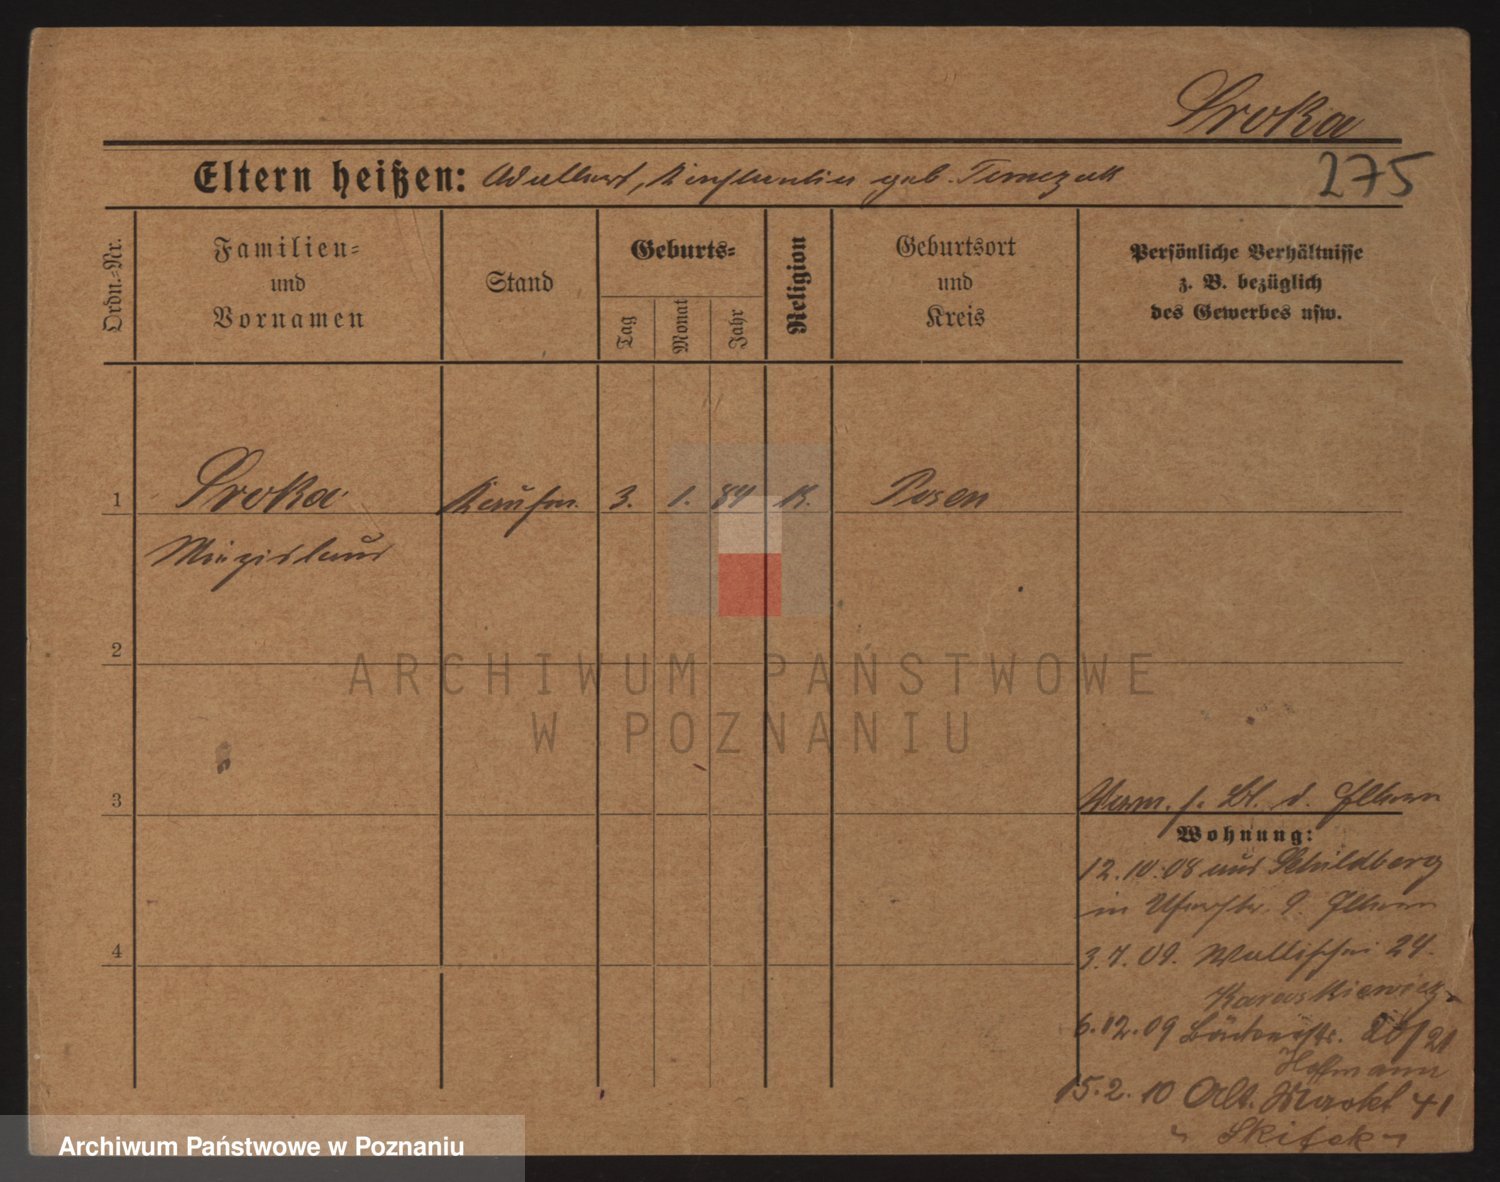 Sroka
275
Eltern heißen: Adalbert, Konstantia geb. Tomczak
Ordn.=Nr.
Familien=
und
Vornamen
Stand
Geburts=
Tag
Monat
Jahr
Religion
Geburtsort
und
Kreis
Persönliche Verhältnisse
z. B. bezüglich
des Gewerbes usw.
1
Sroka
Kaufm.
3.
1.
84
K.
Posen
Miezislaus
2
ARCHIWUM PAŃSTWOWE
W POZNANIU
3
Verm. s. Bl. d. Eltern
Wohnung:
12.10.08 aus Schildberg
in 9. Eltern
4
3.7.09. Wallischei 24.
Karaskiewicz
6.12.09 21
Hoffmann
15.2.10 Alt. Markt 41
Skitek
Archiwum Państwowe w Poznaniu